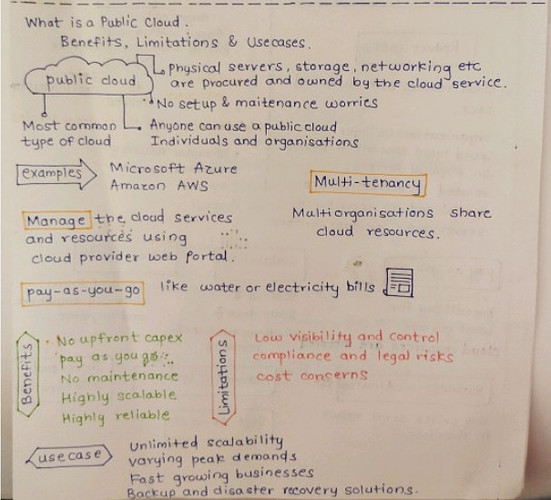 What is a Public Cloud.
Benefits, Limitations & Usecases.
public cloud
Physical servers, storage, networking etc
are procured and owned by the cloud service.
No setup & maitenance worries
Most common
type of cloud
Anyone can use a public cloud
Individuals and organisations
examples
Microsoft Azure
Amazon AWS
Multi-tenancy
Multiorganisations share
cloud resources.
Manage the cloud services
and resources using
cloud provider web portal.
pay-as-you-go like water or electricity bills
Benefits
No upfront capex
pay as you go
No maintenance
Highly scalable
Highly reliable
Limitations
Low visibility and control
compliance and legal risks
cost concerns
usecase
Unlimited scalability
varying peak demands
Fast growing businesses
Backup and disaster recovery solutions.